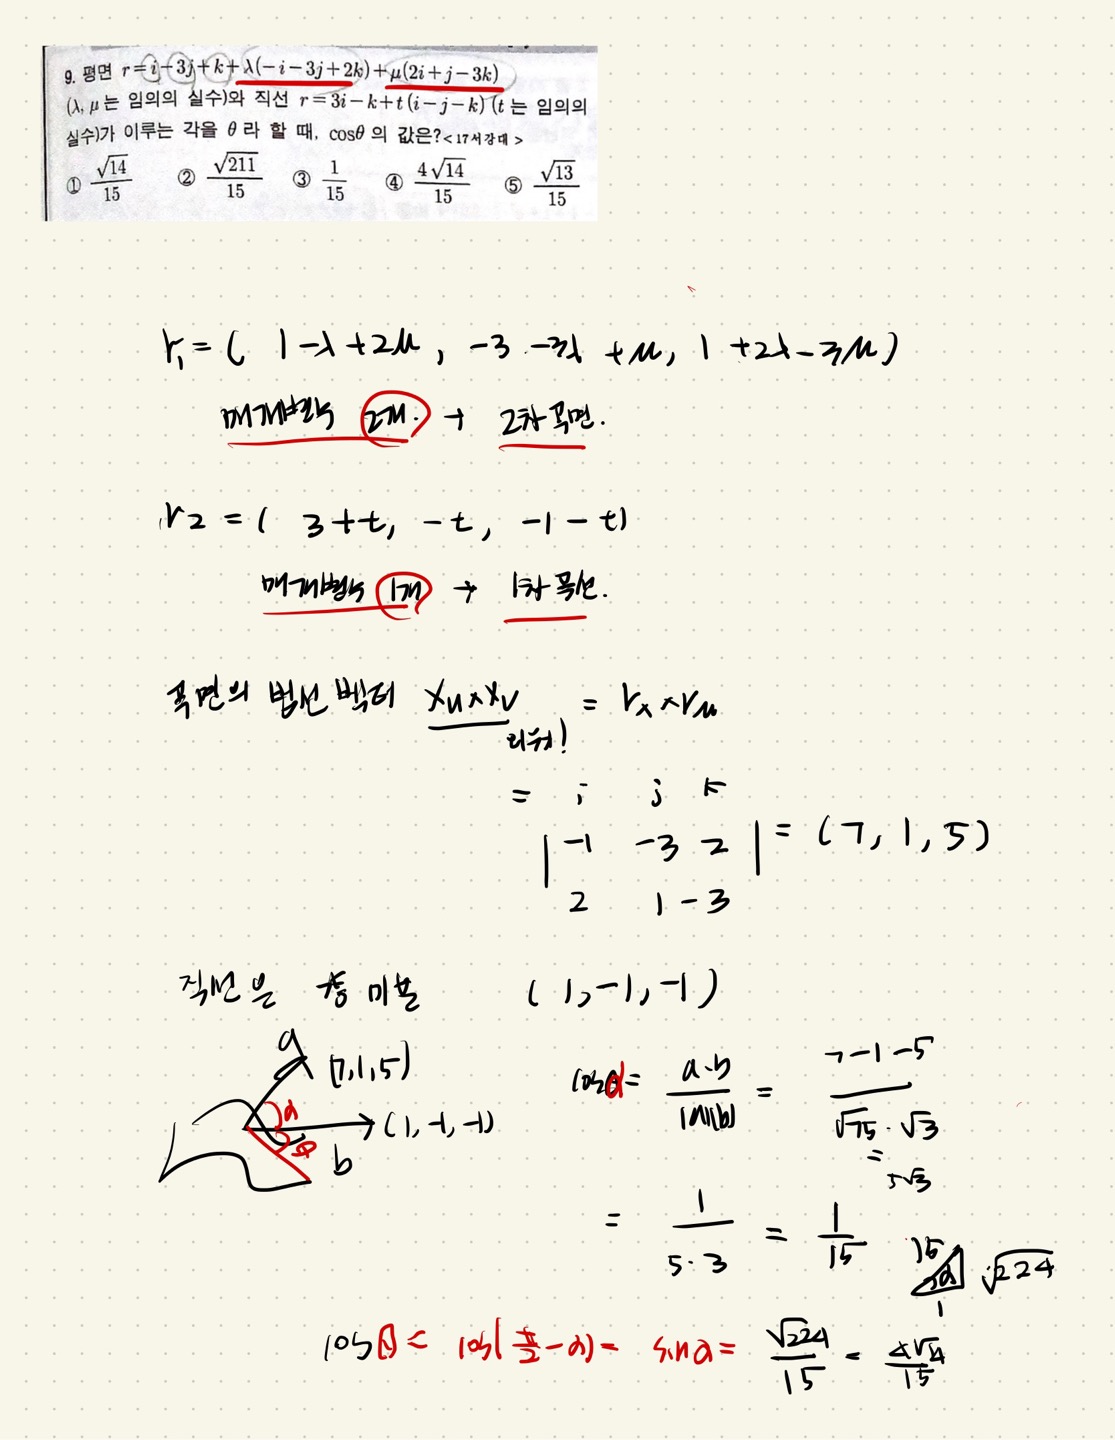 9. 평면 r=i-3j+k+λ(-i-3j+2k)+μ(2i+j-3k)
(λ, μ는 임의의 실수)와 직선 r=3i-k+t(i-j-k) (t는 임의의
실수)가 이루는 각을 θ라 할 때, cosθ의 값은?<17서강대>
① √14/15 ② √211/15 ③ 1/15 ④ 4√14/15 ⑤ √13/15
r₁ = ( 1-λ+2μ, -3-3λ+μ, 1+2λ-3μ)
매개변수 2개. → 2차 곡면.
r2 = ( 3+t, -t, -1-t)
매개변수 1개 → 1차 곡선.
곡면의 법선 벡터 Xu×Xv = rλ×rμ
외워!
= i j k
| -1 -3 2 | = (7, 1, 5)
2 1 -3
직선은 미분 (1, -1, -1)
a (7,1,5)
α
(1, -1, -1)
θ
b
cosα = a·b/|a||b| = 7-1-5/√75·√3
= 5√3
= 1/5·3 = 1/15
15 α 1 √224
cosθ = cos(π/2-α) = sinα = √224/15 = 4√14/15